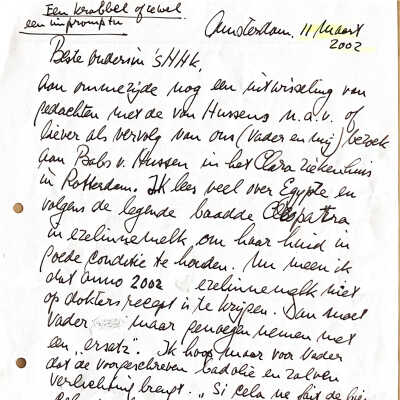 Een krabbel ofwel
een impromptu
Amsterdam, 11 Maart
2002
Beste ouders in 'sHHK,
Aan ommezijde nog een uitwisseling van
gedachten met de von Hussens n.a.v. of
liever als vervolg van ons (vader en mij) bezoek
aan Babs v. Hussen in het Clara ziekenhuis
in Rotterdam. Ik lees veel over Egypte en
volgens de legende baadde Cleopatra
in ezelinnemelk, om haar huid in
goede conditie te houden. Nu meen ik
dat anno 2002 ezelinnemelk niet
op doktersrecept is te krijgen. Dan moet
vader maar genoegen nemen met
een "ersatz". Ik hoop maar voor vader
dat de voorgeschreven badolie en zalven
verlichting brengt. "Si cela ne fait de bien